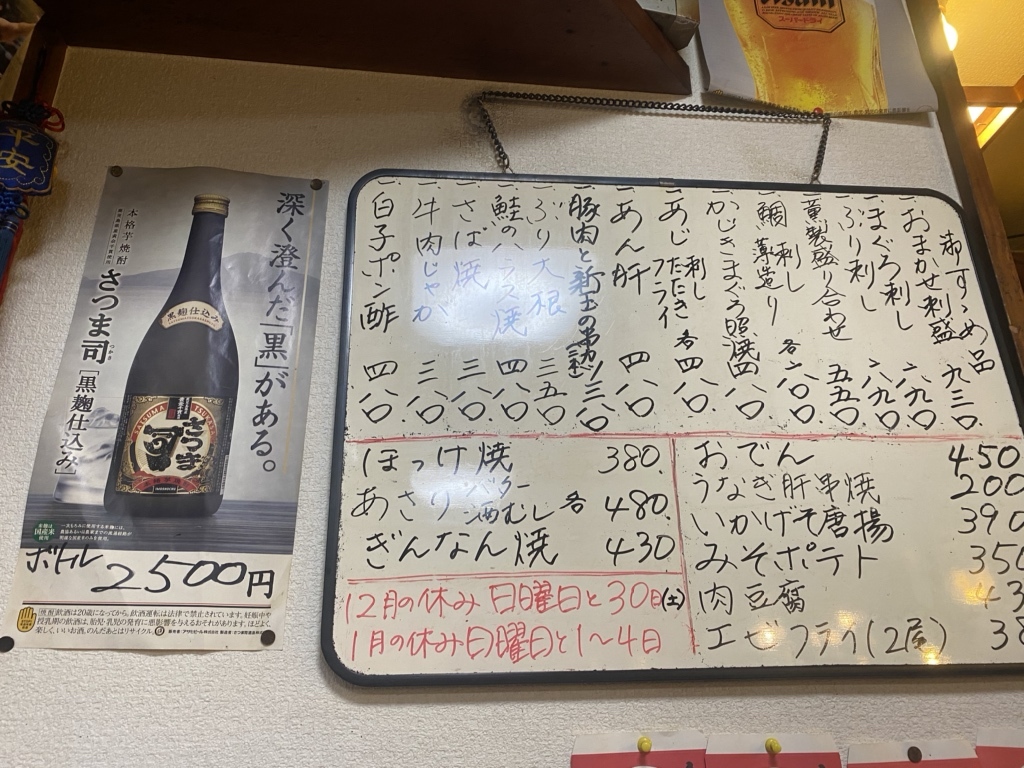 平安
深く澄んだ「黒」がある。
本格芋焼酎
さつま司[黒麹仕込み]
つかさ
黒麹仕込み
SATSUMA TSUKASA
さつま司
国産米
ボトル
2500円
飲酒は20歳になってから。飲酒運転は法律で禁止されています。妊娠中や
授乳期の飲酒は、胎児・乳児の発育に悪影響を与えるおそれがあります。ほどよく、
楽しく、いいお酒。のんだあとはリサイクル。
Asahi
スーパードライ
御すゝめ品
一、おまかせ刺盛 九三〇
一、まぐろ刺し 六九〇
一、ぶり刺し 六九〇
一、燻製盛り合わせ 五五〇
一、鯛 刺し 薄造り 各六八〇
一、かじきまぐろ照焼 四八〇
一、あじ 刺し たたき フライ 各四八〇
一、あん肝 四八〇
一、豚肉と新玉の串 三八〇
一、ぶり大根 三五〇
一、鮭のハラス焼 四八〇
一、さば焼 三八〇
一、牛肉じゃが 三八〇
一、白子ポン酢 四八〇
ほっけ焼 380.
あさり バター 酒むし 各 480.
ぎんなん焼 430
12月の休み 日曜日と30日(土)
1月の休み 日曜日と1〜4日
おでん 450
うなぎ肝串焼 200
いかげそ唐揚 390
みそポテト 350
肉豆腐 43
エビフライ(2尾) 38